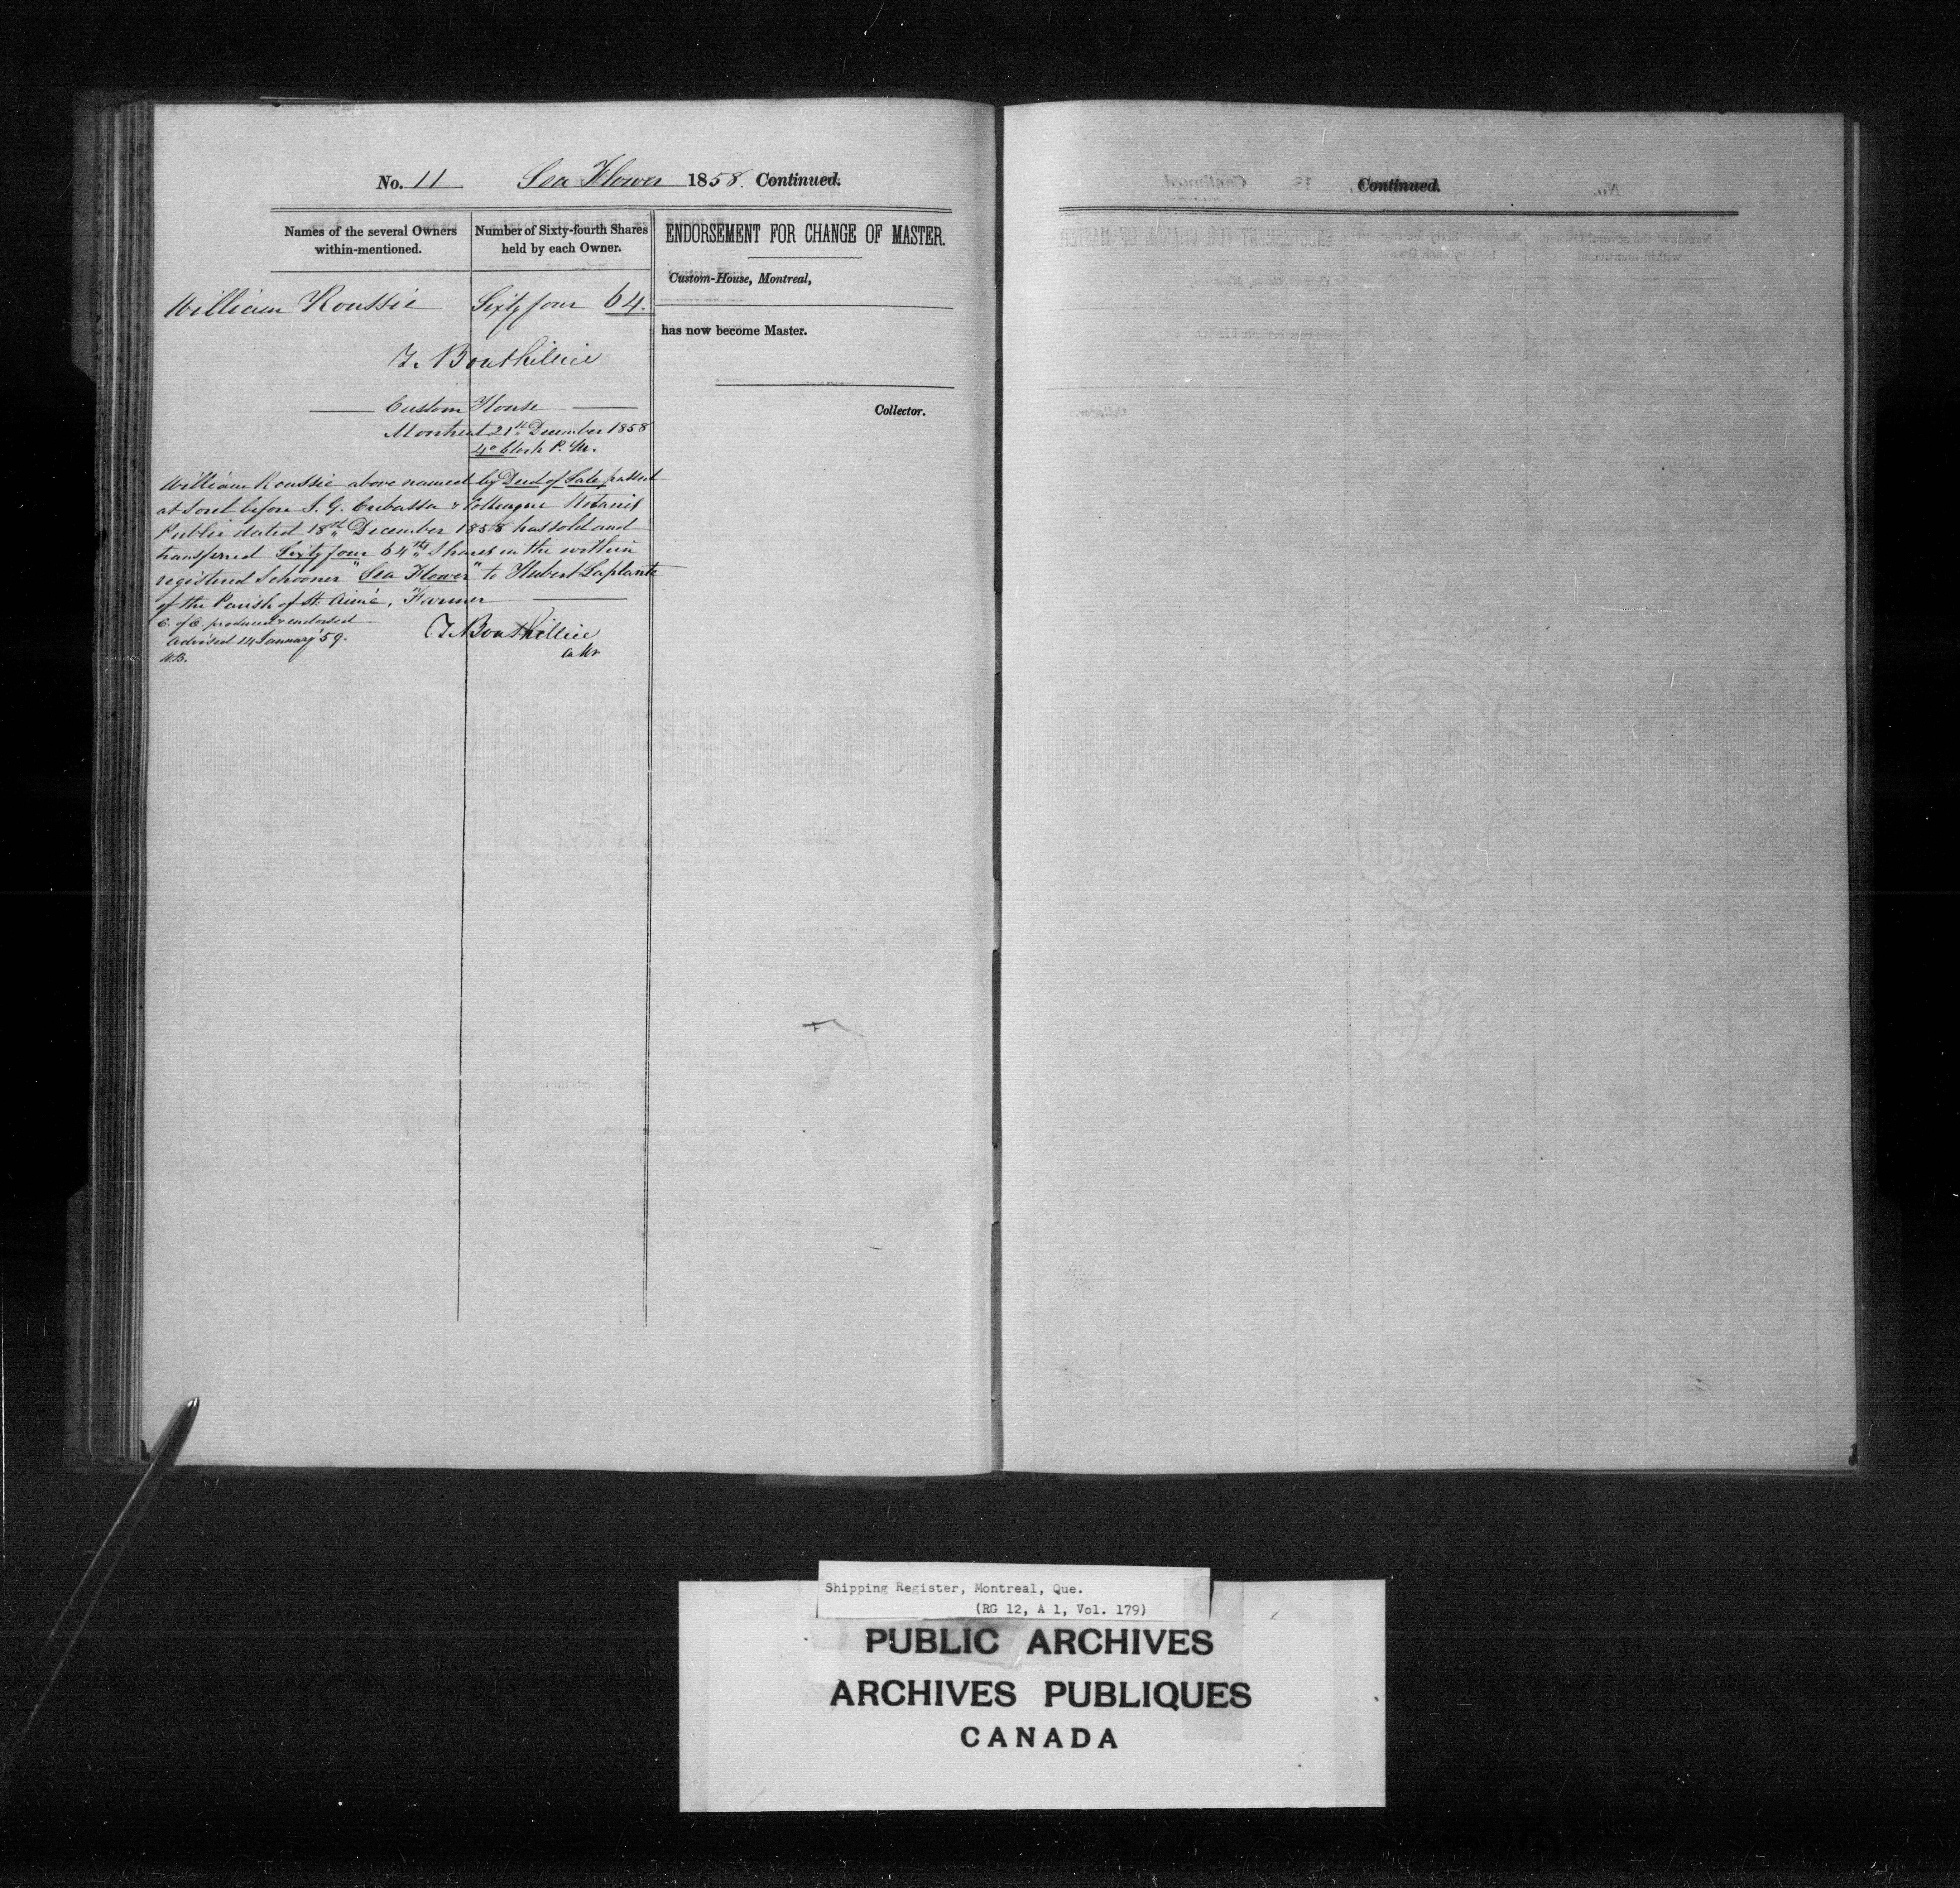 No. 11 Sea Flower 1858. Continued.
Names of the several Owners within-mentioned.
Number of Sixty-fourth Shares held by each Owner.
ENDORSEMENT FOR CHANGE OF MASTER.
Custom-House, Montreal,
William Roussie Sixty four 64.
has now become Master.
T. Bouthillier
Custom House
Collector.
Montreal 21st December 1858
4 o'Clock P.M.
William Roussie above named by Deed of Sale passed
at Sorel before J. G. Crebassa & Colleague Notaries
Public dated 18th December 1858 has sold and
transferred Sixty four 64th Shares in the within
registered Schooner "Sea Flower" to Hubert Laplante
of the Parish of St. Aimé, Farmer
C. of R. produced & endorsed
Advised 14 January '59.
T. Bouthillier
Continued.
Shipping Register, Montreal, Que.
(RG 12, A 1, Vol. 179)
PUBLIC ARCHIVES
ARCHIVES PUBLIQUES
CANADA